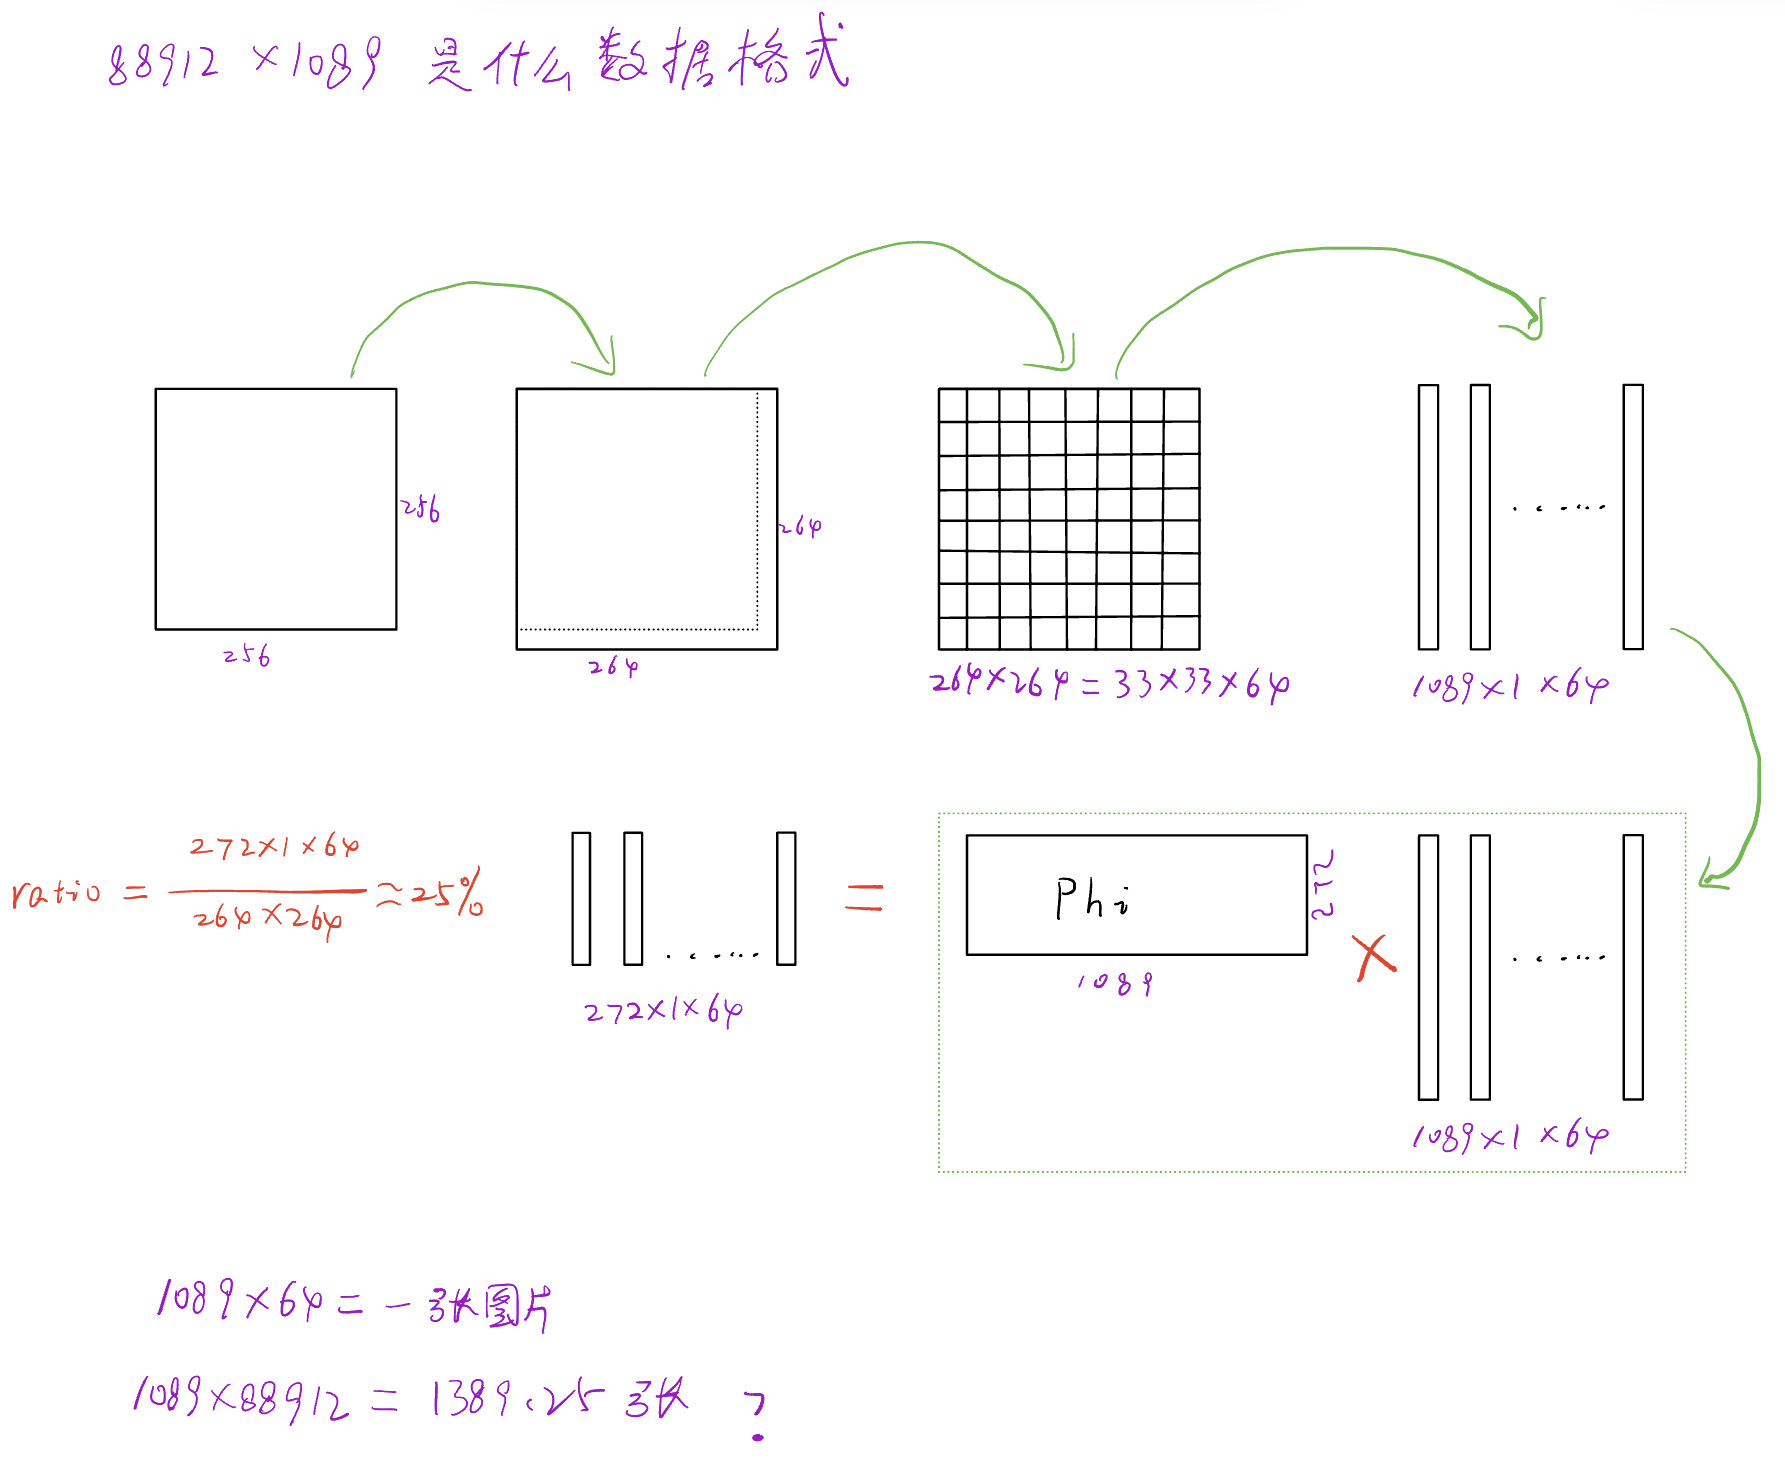 88912 ×1089 是什么数据格式
256
256
264
264
264×264 = 33×33×64
1089×1 ×64
ratio = 272×1×64 / 264×264 ≈25%
272×1×64
=
Phi
272
1089
×
1089×1 ×64
1089×64 = 一张图片
1089×88912 = 1389.25 张 ?